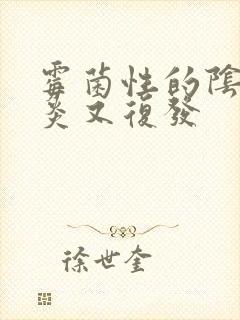 霉菌性的陰
炎又復發
徐世奎